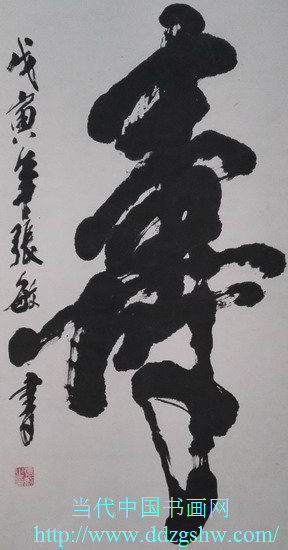 寿
戊寅年張敏書
当代中国书画网
http://www.ddzgshw.com/